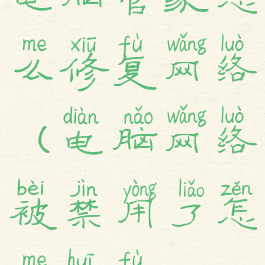 电脑管家怎
me xiū fù wǎng luò
么修复网络
diàn nǎo wǎng luò
（电脑网络
bèi jìn yòng liǎo zěn
被禁用了怎
me huī fù